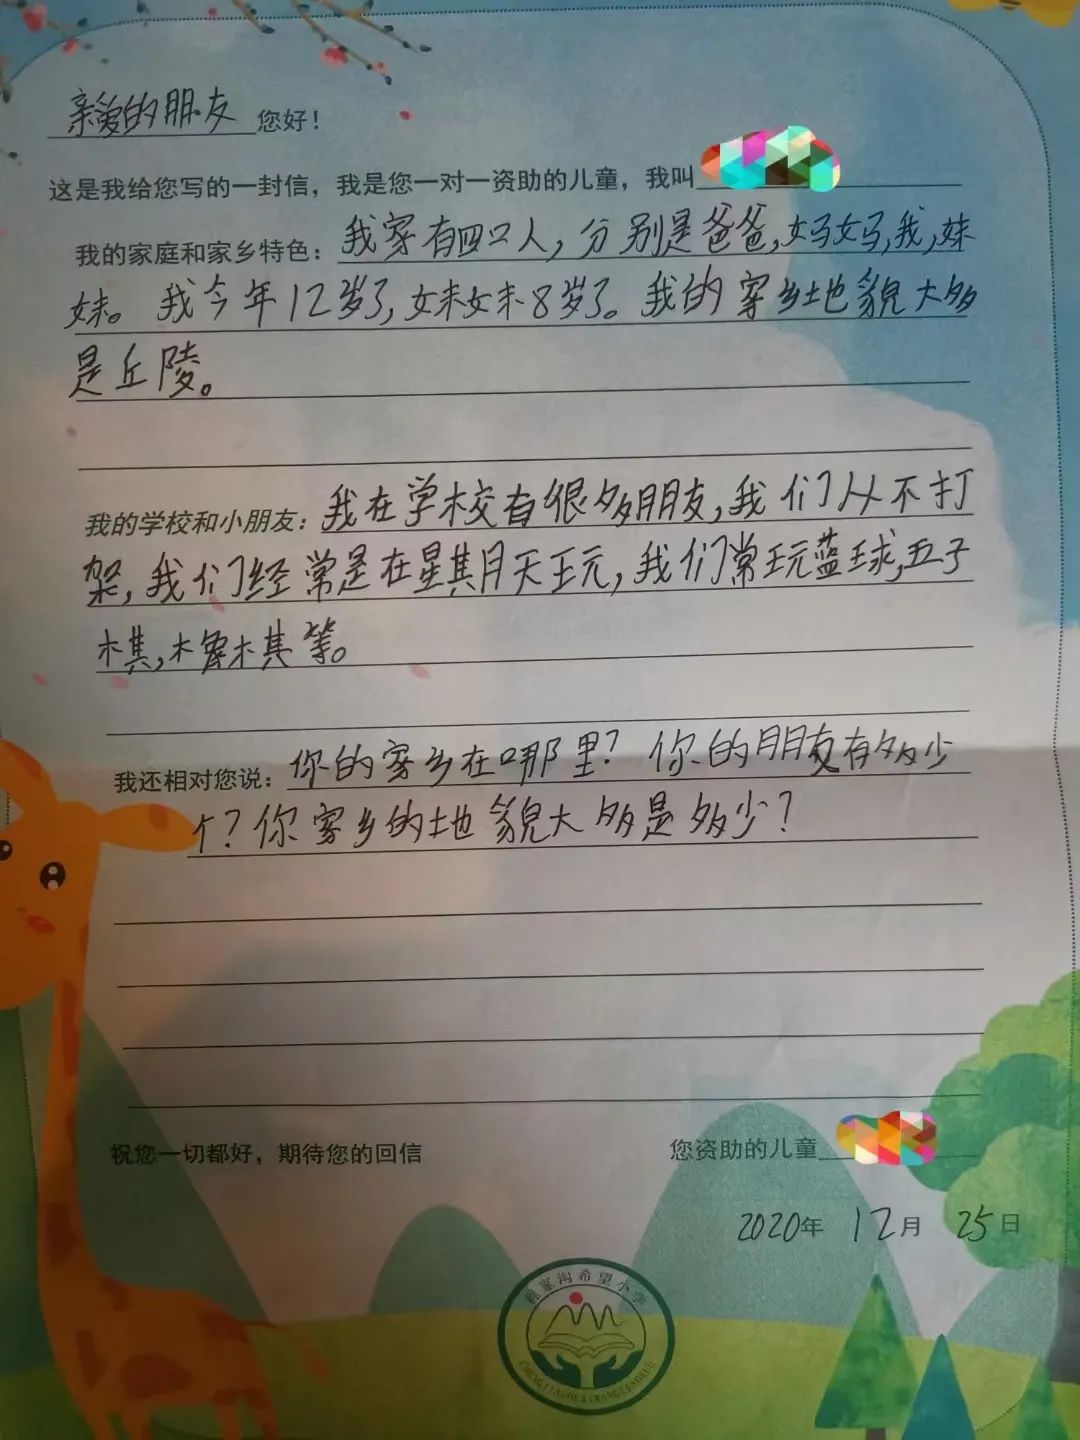 亲爱的朋友 您好！
这是我给您写的一封信，我是您一对一资助的儿童，我叫
我的家庭和家乡特色：我家有四口人，分别是爸爸，妈妈，我，妹
妹。我今年12岁了，妹妹8岁了。我的家乡地貌大多
是丘陵。
我的学校和小朋友：我在学校有很多朋友，我们从不打
架，我们经常是在星期天玩，我们常玩蓝球，五子
棋，象棋等。
我还相对您说：你的家乡在哪里？你的朋友有多少
个？你家乡的地貌大多是多少？
祝您一切都好，期待您的回信
您资助的儿童
2020年 12月 25日
程家沟希望小学
CHENGJIAGOUXIWANGXIAOXUE